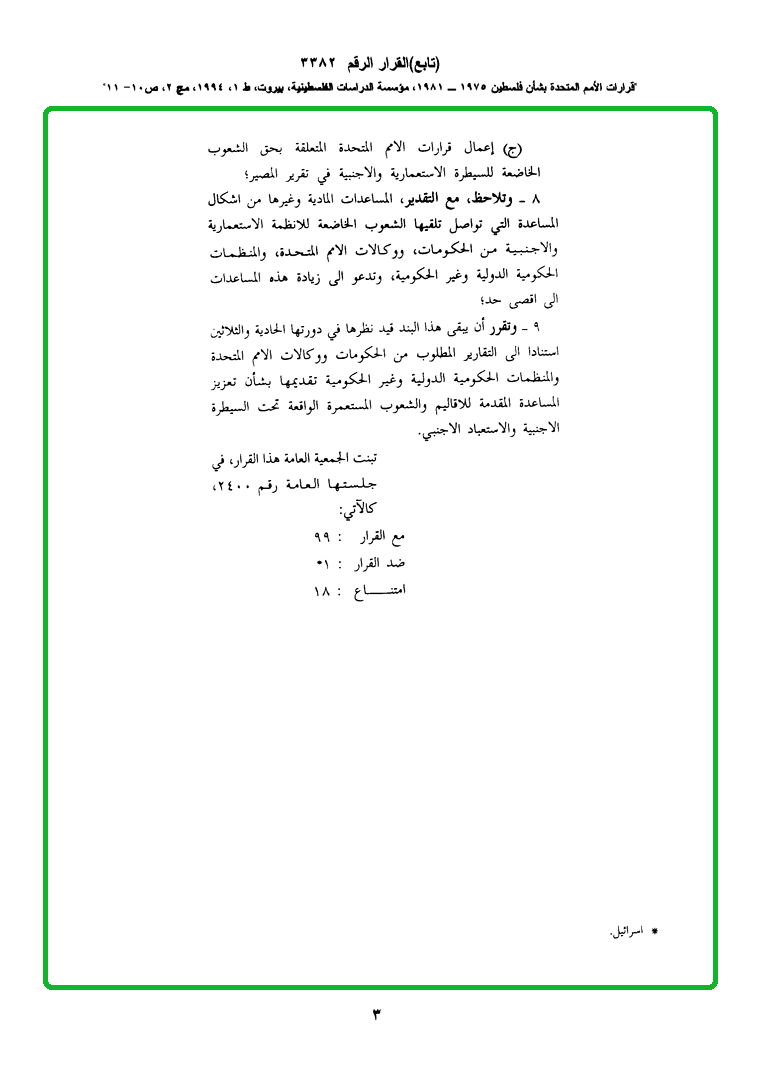 (تابع)القرار الرقم ٣٣٨٢
"قرارات الأمم المتحدة بشأن فلسطين ١٩٧٥ ــ ١٩٨١، مؤسسة الدراسات الفلسطينية، بيروت، ط ١، ١٩٩٤، مج ٢، ص١٠- ١١"
(ج) إعمال قرارات الامم المتحدة المتعلقة بحق الشعوب
الخاضعة للسيطرة الاستعمارية والاجنبية في تقرير المصير؛
٨ ـ وتلاحظ، مع التقدير، المساعدات المادية وغيرها من اشكال
المساعدة التي تواصل تلقيها الشعوب الخاضعة للانظمة الاستعمارية
والاجنبية من الحكومات، ووكالات الامم المتحدة، والمنظمات
الحكومية الدولية وغير الحكومية، وتدعو الى زيادة هذه المساعدات
الى اقصى حد؛
٩ ـ وتقرر أن يبقى هذا البند قيد نظرها في دورتها الحادية والثلاثين
استنادا الى التقارير المطلوب من الحكومات ووكالات الامم المتحدة
والمنظمات الحكومية الدولية وغير الحكومية تقديمها بشأن تعزيز
المساعدة المقدمة للاقاليم والشعوب المستعمرة الواقعة تحت السيطرة
الاجنبية والاستعباد الاجنبي.
تبنت الجمعية العامة هذا القرار، في
جلستها العامة رقم ٢٤٠٠،
كالآتي:
مع القرار : ٩٩
ضد القرار : ١*
امتنـــــاع : ١٨
* اسرائيل.
٣